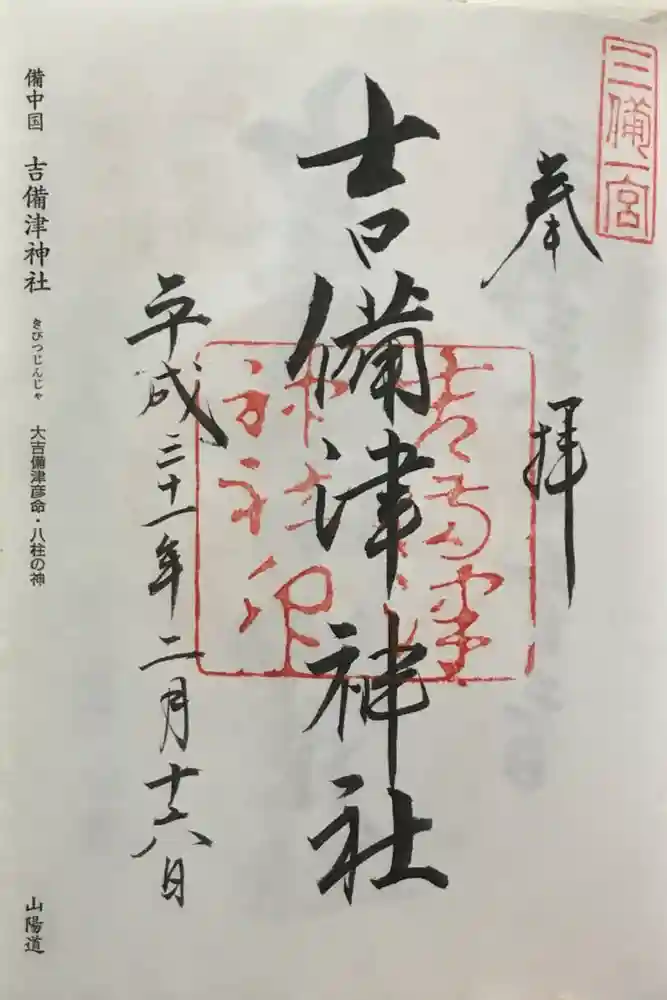 三備一宮
奉拝
吉備津神社
吉備津神社印
平成三十一年二月十六日
備中国 吉備津神社 きびつじんじゃ 大吉備津彦命・八柱の神 山陽道